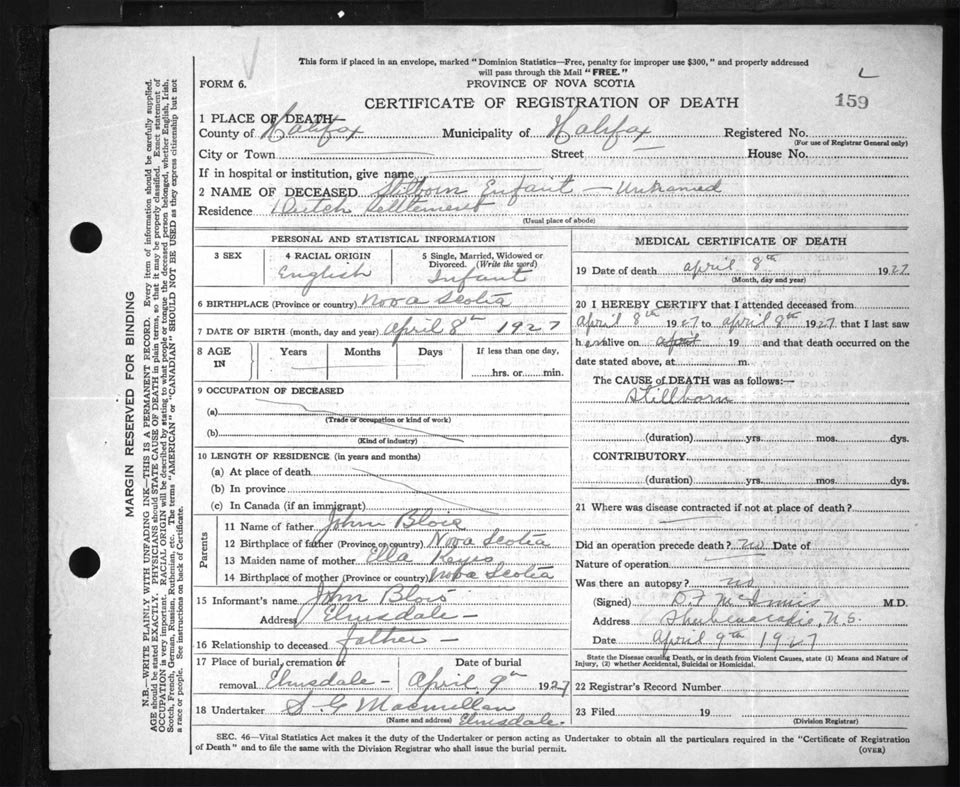 This form if placed in an envelope, marked "Dominion Statistics—Free, penalty for improper use $300," and properly addressed
will pass through the Mail "FREE."
FORM 6.
PROVINCE OF NOVA SCOTIA
CERTIFICATE OF REGISTRATION OF DEATH
159
1 PLACE OF DEATH—
County of Halifax Municipality of Halifax Registered No.
(For use of Registrar General only)
City or Town Street House No.
If in hospital or institution, give name
2 NAME OF DECEASED Stilborn Enfant — Unnamed
Residence Dutch Settlement
(Usual place of abode)
PERSONAL AND STATISTICAL INFORMATION
3 SEX 4 RACIAL ORIGIN English 5 Single, Married, Widowed or
Divorced. (Write the word)
Infant
6 BIRTHPLACE (Province or country) Nova Scotia
7 DATE OF BIRTH (month, day and year) April 8th 1927
8 AGE IN Years Months Days If less than one day,
hrs. or min.
9 OCCUPATION OF DECEASED
(a)
(Trade or occupation or kind of work)
(b)
(Kind of industry)
10 LENGTH OF RESIDENCE (in years and months)
(a) At place of death
(b) In province
(c) In Canada (if an immigrant)
Parents
11 Name of father John Blois
12 Birthplace of father (Province or country) Nova Scotia
13 Maiden name of mother Ella Keys
14 Birthplace of mother (Province or country) Nova Scotia
15 Informant's name John Blois
Address Elmsdale —
16 Relationship to deceased father —
17 Place of burial, cremation or Date of burial
removal Elmsdale — April 9th 1927
18 Undertaker S. G Macmillan
(Name and address) Elmsdale.
MEDICAL CERTIFICATE OF DEATH
19 Date of death april 8th 1927
(Month, day and year)
20 I HEREBY CERTIFY that I attended deceased from
April 8th 1927 to april 8th 1927 that I last saw
h alive on 19 and that death occurred on the
date stated above, at m.
The CAUSE of DEATH was as follows:—
Stillborn
(duration) yrs. mos. dys.
CONTRIBUTORY
(duration) yrs. mos. dys.
21 Where was disease contracted if not at place of death?
Did an operation precede death? no Date of
Nature of operation
Was there an autopsy? no
(Signed) D F McInnis M.D.
Address Shubenacadie, N.S.
Date April 9th 1927
State the Disease causing Death, or in death from Violent Causes, state (1) Means and Nature of
Injury, (2) whether Accidental, Suicidal or Homicidal.
22 Registrar's Record Number
23 Filed 19
(Division Registrar)
SEC. 46—Vital Statistics Act makes it the duty of the Undertaker or person acting as Undertaker to obtain all the particulars required in the "Certificate of Registration
of Death" and to file the same with the Division Registrar who shall issue the burial permit.
(OVER)
MARGIN RESERVED FOR BINDING
N.B.—WRITE PLAINLY WITH UNFADING INK—THIS IS A PERMANENT RECORD. Every item of information should be carefully supplied.
AGE should be stated EXACTLY. PHYSICIANS should STATE CAUSE OF DEATH in plain terms, so that it may be properly classified. Exact statement of
OCCUPATION is very important. RACIAL ORIGIN will be described by stating to what people or tongue the deceased person belonged, whether English, Irish,
Scotch, French, German, Russian, Ruthenian, etc. The terms "AMERICAN" or "CANADIAN" SHOULD NOT BE USED as they express citizenship but not
a race or people. See instructions on back of Certificate.